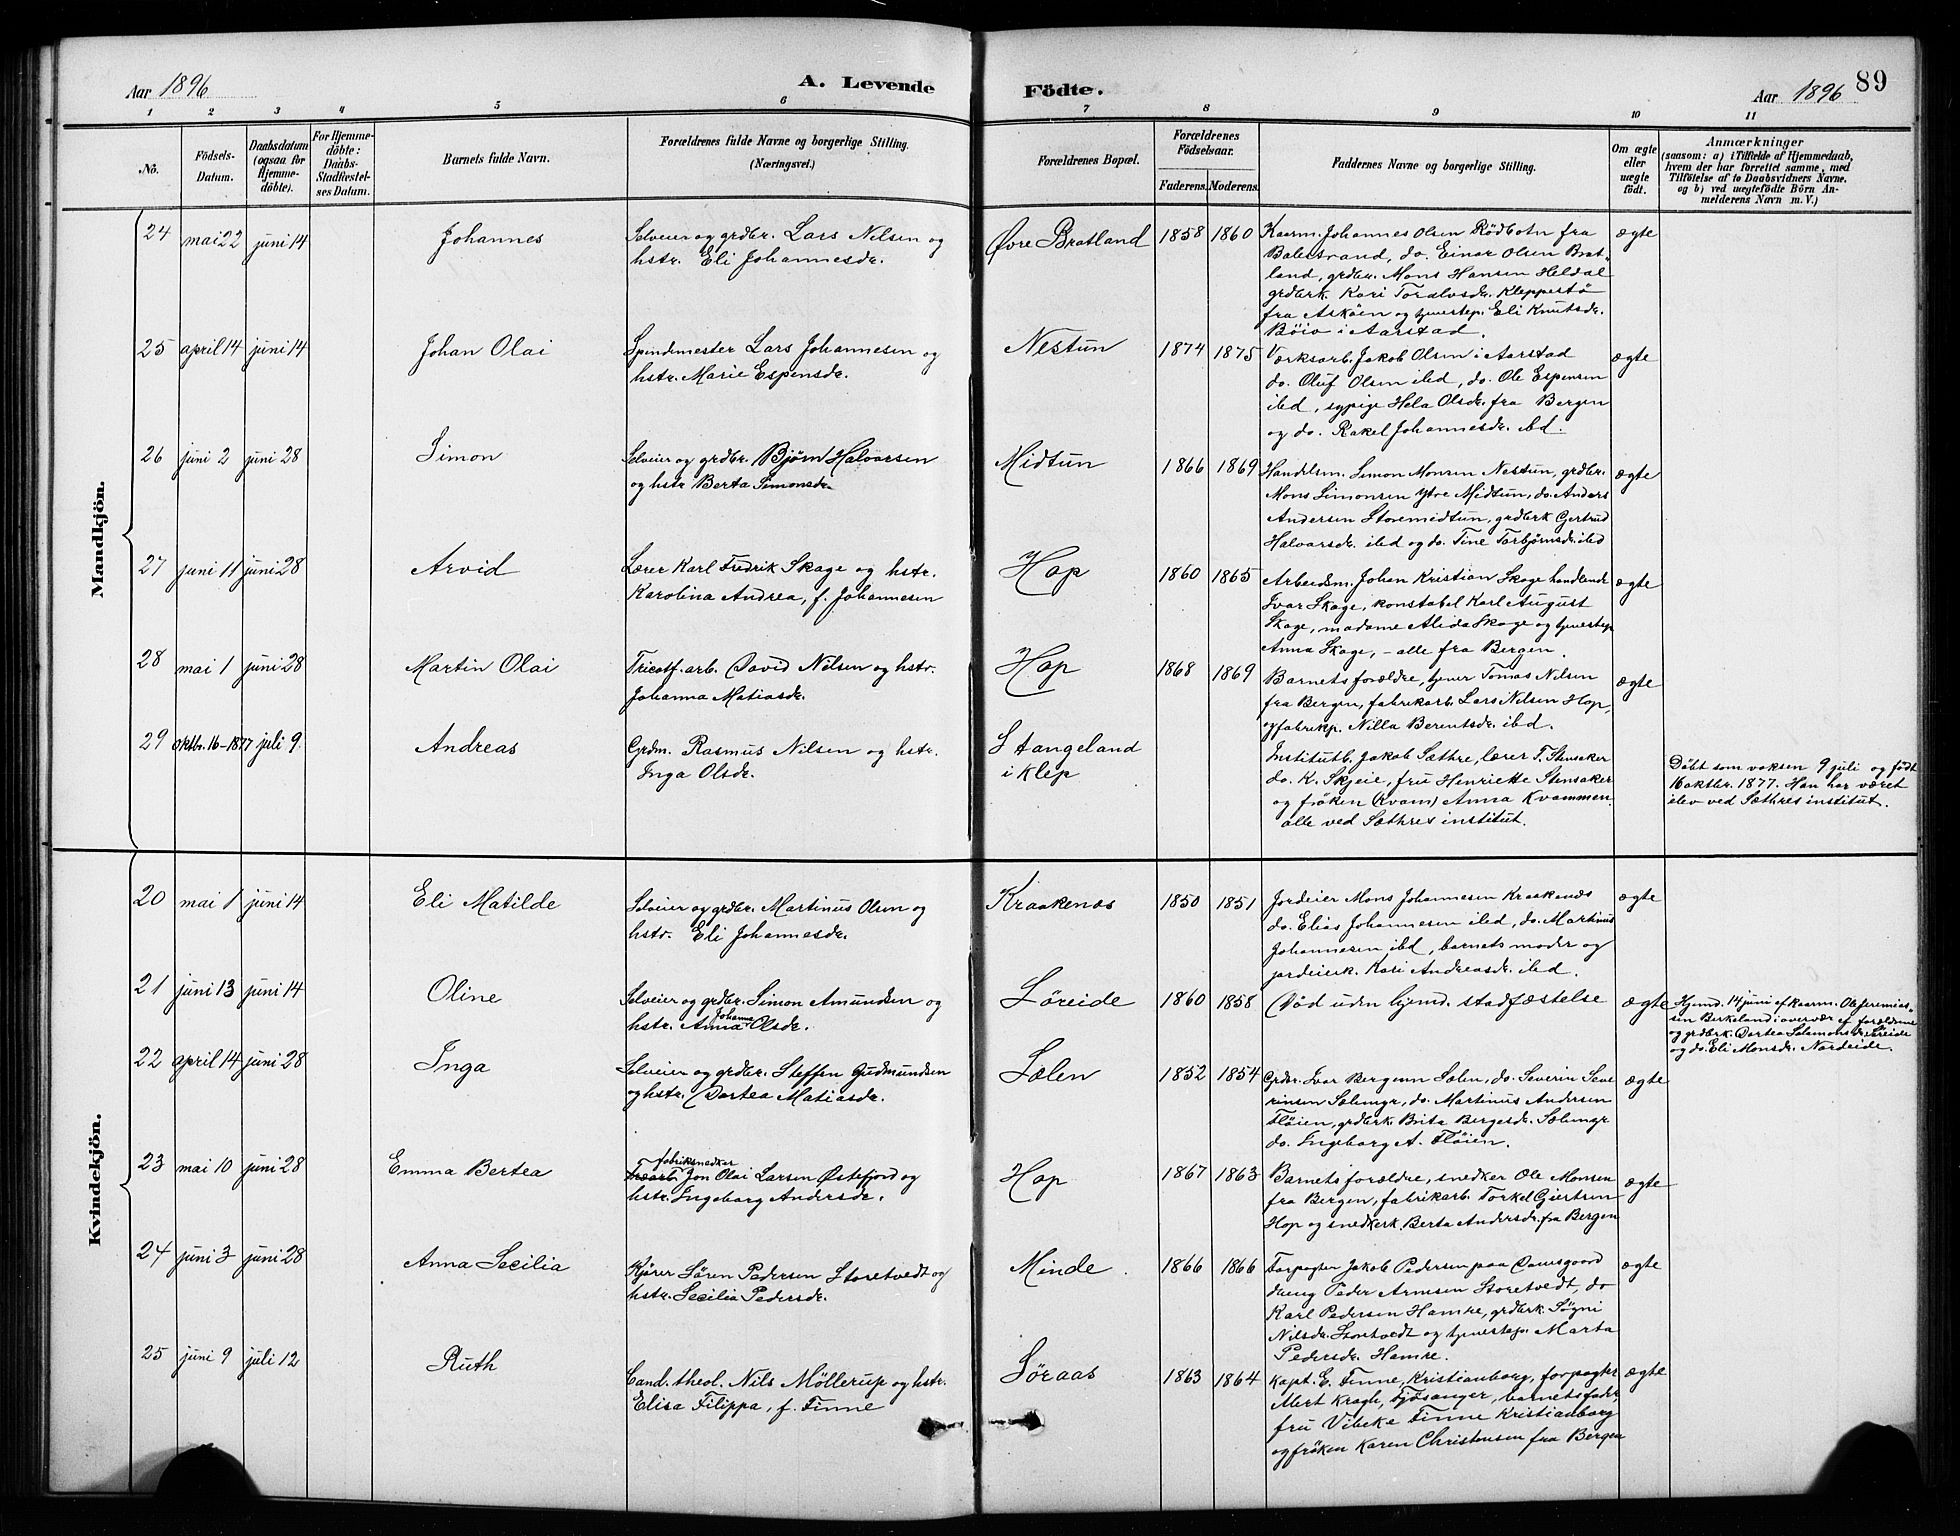 Aar 1896
A. Levende
Födte.
Aar 1896
89
1 2 3 4 5 6 7 8 9 10 11
No.
Födsels-
Datum.
Daabsdatum
(ogsaa for
Hjemme-
döbte).
For Hjemme-
döbte:
Daabs-
Stadfestel-
ses Datum.
Barnets fulde Navn.
Forældrenes fulde Navne og borgerlige Stilling.
(Næringsvei.)
Forældrenes Bopæl.
Forældrenes
Födselsaar.
Faderens. Moderens.
Faddernes Navne og borgerlige Stilling.
Om ægte
eller
uægte
födt.
Anmærkninger
(saasom: a) i Tilfælde af Hjemmedaab,
hvem der har forrettet samme, med
Tilföielse af to Daabsvidners Navne.
og b) ved uægtefödte Börn An-
melderens Navn m. V.)
Mandkjön.
24 mai 22 juni 14 Johannes
Selveier og grdbr. Lars Nilsen og
hstr. Eli Johannesdr.
Øvre Bratland 1858 1860
Kaarm. Johannes Olsen Rödbotn fra
Balestrand, do. Einar Olsen Brat-
land, grdbr. Mons Hansen Heldal
grdbrk. Kari Toralvsdr. Kleppestö
fra Asköen og tjenestep. Eli Knutsdr.
Böiv i Aarstad.
ægte
25 april 14 juni 14 Johan Olai
Spindmester Lars Johannesen og
hstr. Marie Espensdr.
Nestun 1874 1875
Værksarb. Jakob Olsen i Aarstad
do. Oluf Olsen ibd, do. Ole Espensen
ibd, sypige Hela Olsdr. fra Bergen
og do. Rakel Johannesdr. ibd.
ægte
26 juni 2 juni 28 Simon
Selveier og grdbr. Bjørn Halvorsen
og hstr Berta Simonsdr.
Midtun 1866 1869
Handelsm. Simon Monsen Nestun, grdbr.
Mons Simonsen Ytre Midtun, do. Anders
Andersen Storemidtun, grdbrk Gertrud
Halvorsdr. ibd og do. Tine Torbjørnsdr. ibd
ægte
27 juni 11 juni 28 Arvid
Lærer Karl Fredrik Skage og hstr.
Karolina Andrea, f. Johannesen
Hop 1860 1865
Arbeidsm. Johan Kristian Skage handlende
Ivar Skage, konstabel Karl August
Skage, madame Alida Skage og tjenestep
Anna Skage, - alle fra Bergen.
ægte
28 mai 1 juni 28 Martin Olai
Tricotf. arb. David Nilsen og hstr.
Johanna Matiasdr.
Hop 1868 1869
Barnets forældre, tjener Tomas Nilsen
fra Bergen, fabrikarb. Lars Nilsen Hop,
og fabrikp. Nilla Berentsdr. ibd.
ægte
29 oktbr. 16-1877 juli 9. Andreas
Grdm. Rasmus Nilsen og hstr.
Inga Olsdr.
Stangeland
i Klep
Institutb. Jakob Sæthre, lærer T. Stensaker
do. K. Skjeie, fru Henriette Stensaker
og frøken (Kvam) Anna Kvammen
alle ved Sæthres institut.
Døbt som voksen 9 juli og født
16 oktbr. 1877. Han har været
elev ved Sæthres institut.
Kvindekjön.
20 mai 1 juni 14 Eli Matilde
Selveier og grdbr. Martinus Olsen og
hstr. Eli Johannesdr.
Kraakenæs 1850 1851
Jordeier Mons Johannesen Kraakenæs
do. Elias Johannesen ibd, do. Martinus
Johannesen ibd, barnets moder og
jordeierk. Kari Andreasdr. ibd.
ægte
21 juni 13 juni 14 Oline
Selveier og grdbr. Simon Amundsen og
hstr. Anna Johanna Olsdr.
Løreide 1860 1858
Död uden hjemd. stadfæstelse
ægte
Hjemd. 14 juni af kaarm. Ole Jeremias-
sen Birkeland i overvær af forældrene
og grdbrk. Dortea Salamonsdr.
og do. Eli Monsdr. Nordeide.
22 april 14 juni 28 Inga
Selveier og grdbr. Steffen Gudmundsen
og hstr. Dortea Matiasdr.
Sælen 1852 1854
Grdbr. Ivar Sælen, do. Severin Seve
rinsen Sælemyr, do. Martinus Andersen
Fløien, grdbrk. Brita Bergesdr. Sælemyr
do. Ingeborg A. Fløien.
ægte
23 mai 10 juni 28 Emma Bertea
fabriksnedker
Træarb. Jon Olai Larsen Østefjord og
hstr. Ingeborg Andersdr.
Hop 1867 1863
Barnets forældre, snedker Ole Monsen
fra Bergen, fabrikarb. Torkel Giertsen
Hop og snedkerk. Berta Andersdr. fra Bergen
ægte
24 juni 3 juni 28 Anna Secilia
Kjører Sören Pedersen Storetvedt og
hstr. Secilia Pedersdr.
Minde. 1866 1866
Forpagter Jakob Pedersen paa Damsgaard
dreng Peder Arnesen Storetvedt, do
Karl Pedersen Hamre, grdbrk. Søgni
Nilsdr. Storetvedt og tjenestep. Marta
Pedersdr. Hamre.
ægte
25 juni 9 juli 12 Ruth
Cand. theol. Nils Möllerup og hstr.
Elisa Filippa, f. Finne
Søraas 1863 1864
Kapt. E. Finne, Kristianborg, forpagter
Alert Kragh, Fjøsanger, barnets fader,
fru Vibeke Finne Kristianborg
og frøken Karen Christensen fra Bergen
ægte